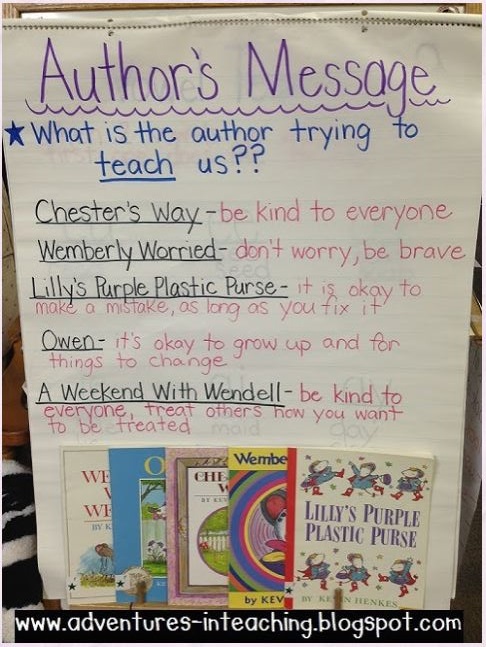 Author's Message
★ What is the author trying to
teach us??
Chester's Way - be kind to everyone
Wemberly Worried - don't worry, be brave
Lilly's Purple Plastic Purse - it is okay to
make a mistake, as long as you fix it
Owen - it's okay to grow up and for
things to change
A Weekend With Wendell - be kind to
everyone, treat others how you want
to be treated
LILLY'S PURPLE
PLASTIC PURSE
BY KEVIN HENKES
www.adventures-inteaching.blogspot.com